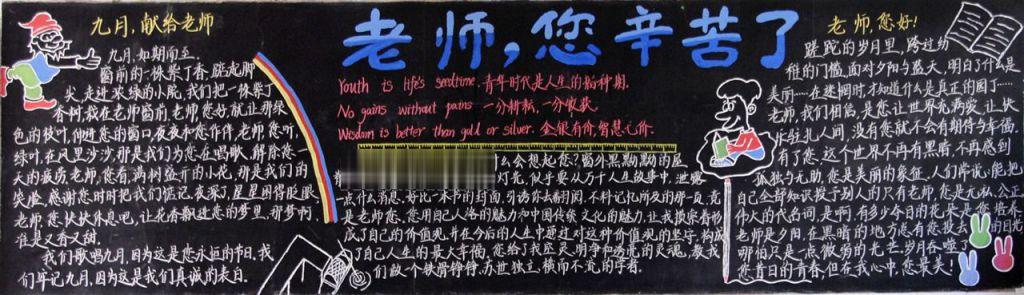 九月,献给老师
九月,如期而至,
窗前的一株紫丁香,踮起脚
尖,走进翠绿的小院,我们把一株紫丁
香树栽在老师窗前,老师,您好,就让那绿
色的枝叶伸进您的窗口,夜夜和您作伴,老师,您听,
绿叶,在风里沙沙,那是我们为您在唱歌,解除您一
天的疲劳,老师,您看,满树盛开的小花,那是我们的
笑脸,感谢您时时把我们惦记,夜深了,星星困得眨眼,
老师,您快快休息吧,让花香飘进您的梦里,那梦啊,
准是又香又甜.
我们歌唱九月,因为这是您永恒的节日,我
们牢记九月,因为这是我们真诚的表白.
老师,您辛苦了
Youth is life's seedtime.青年时代是人生的播种期.
No gains without pains 一分耕耘,一分收获.
Wisdom is better than gold or silver. 金银有价,智慧无价.
什么会想起您?窗外黑黝黝的屋
灯亮,似乎要从万千人生故事中,泄露
一点什么消息,好比一本书的封面,引诱你去翻阅,不料记忆所及的那一页,竟
是老师您,您用自己人格的魅力和中国传统文化的魅力,让我摸索着形
成了自己的价值观,并在今后的人生中通过对这种价值观的坚守,构成
了自己人生的最大幸福,您给了我空灵、明净和诱化的灵魂,教我
们做个铁骨铮铮,苏世独立,横而不流的学者.
老师,您好!
蹉跎的岁月里,跨过幼
稚的门槛,面对夕阳与蓝天,明白了什么是
美丽……在迷惘时不知道什么是真正的困
老师,我们相信,是您让世界充满爱,让快
乐驻扎人间,没有您就不会有期待与幸福.
有了您,这个世界不再有黑暗,不再感到
孤独与无助,您是美丽的象征,人们常说:能把
自己全部知识授予别人的只有老师,您是无私、公正、
伟大的代名词,是啊,有多少今日的花朵是您培养
老师是夕阳,在黑暗的地方您有您投去的目光
哪怕只是一点微弱的光芒,岁月吞噬了
您昔日的青春,但在我心中,您最美!